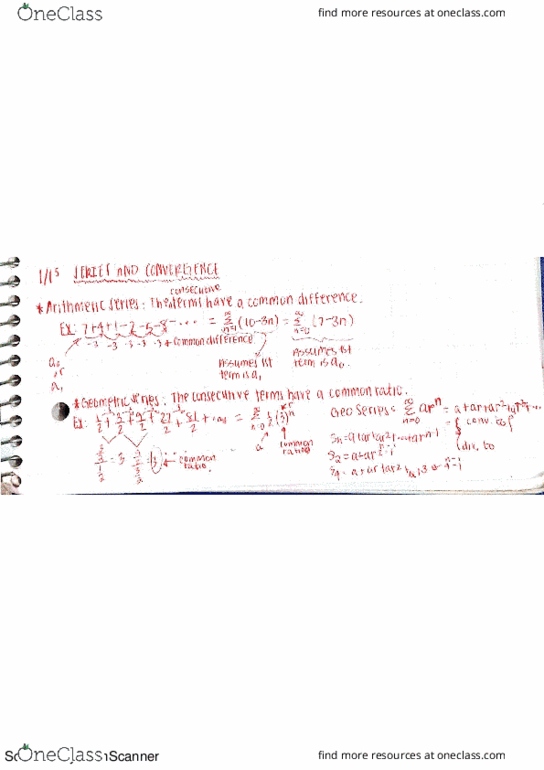 OneClass
find more resources at oneclass.com
1/15 SERIES AND CONVERGENCE
consecutive
* Arithmetic series: The terms have a common difference.
Ex: 7+4+1-2-5-8-... = ∞Σn=1 (10-3n) = ∞Σn=0 (7-3n)
-3 -3 -3 -3 -3 ← common difference
a0 or a1
Assumes 1st term is a1
Assumes 1st term is a0
* Geometric series: The consecutive terms have a common ratio.
Ex: 1/2 + 3/2 + 9/2 + 27/2 + 81/2 + ... = ∞Σn=0 1/2 (3)^n
a
common ratio
common ratio.
Geo Series = ∞Σn=0 ar^n = a+ar+ar²+ar³+...
= { conv. to
div. to
OneClass
Scanner
find more resources at oneclass.com